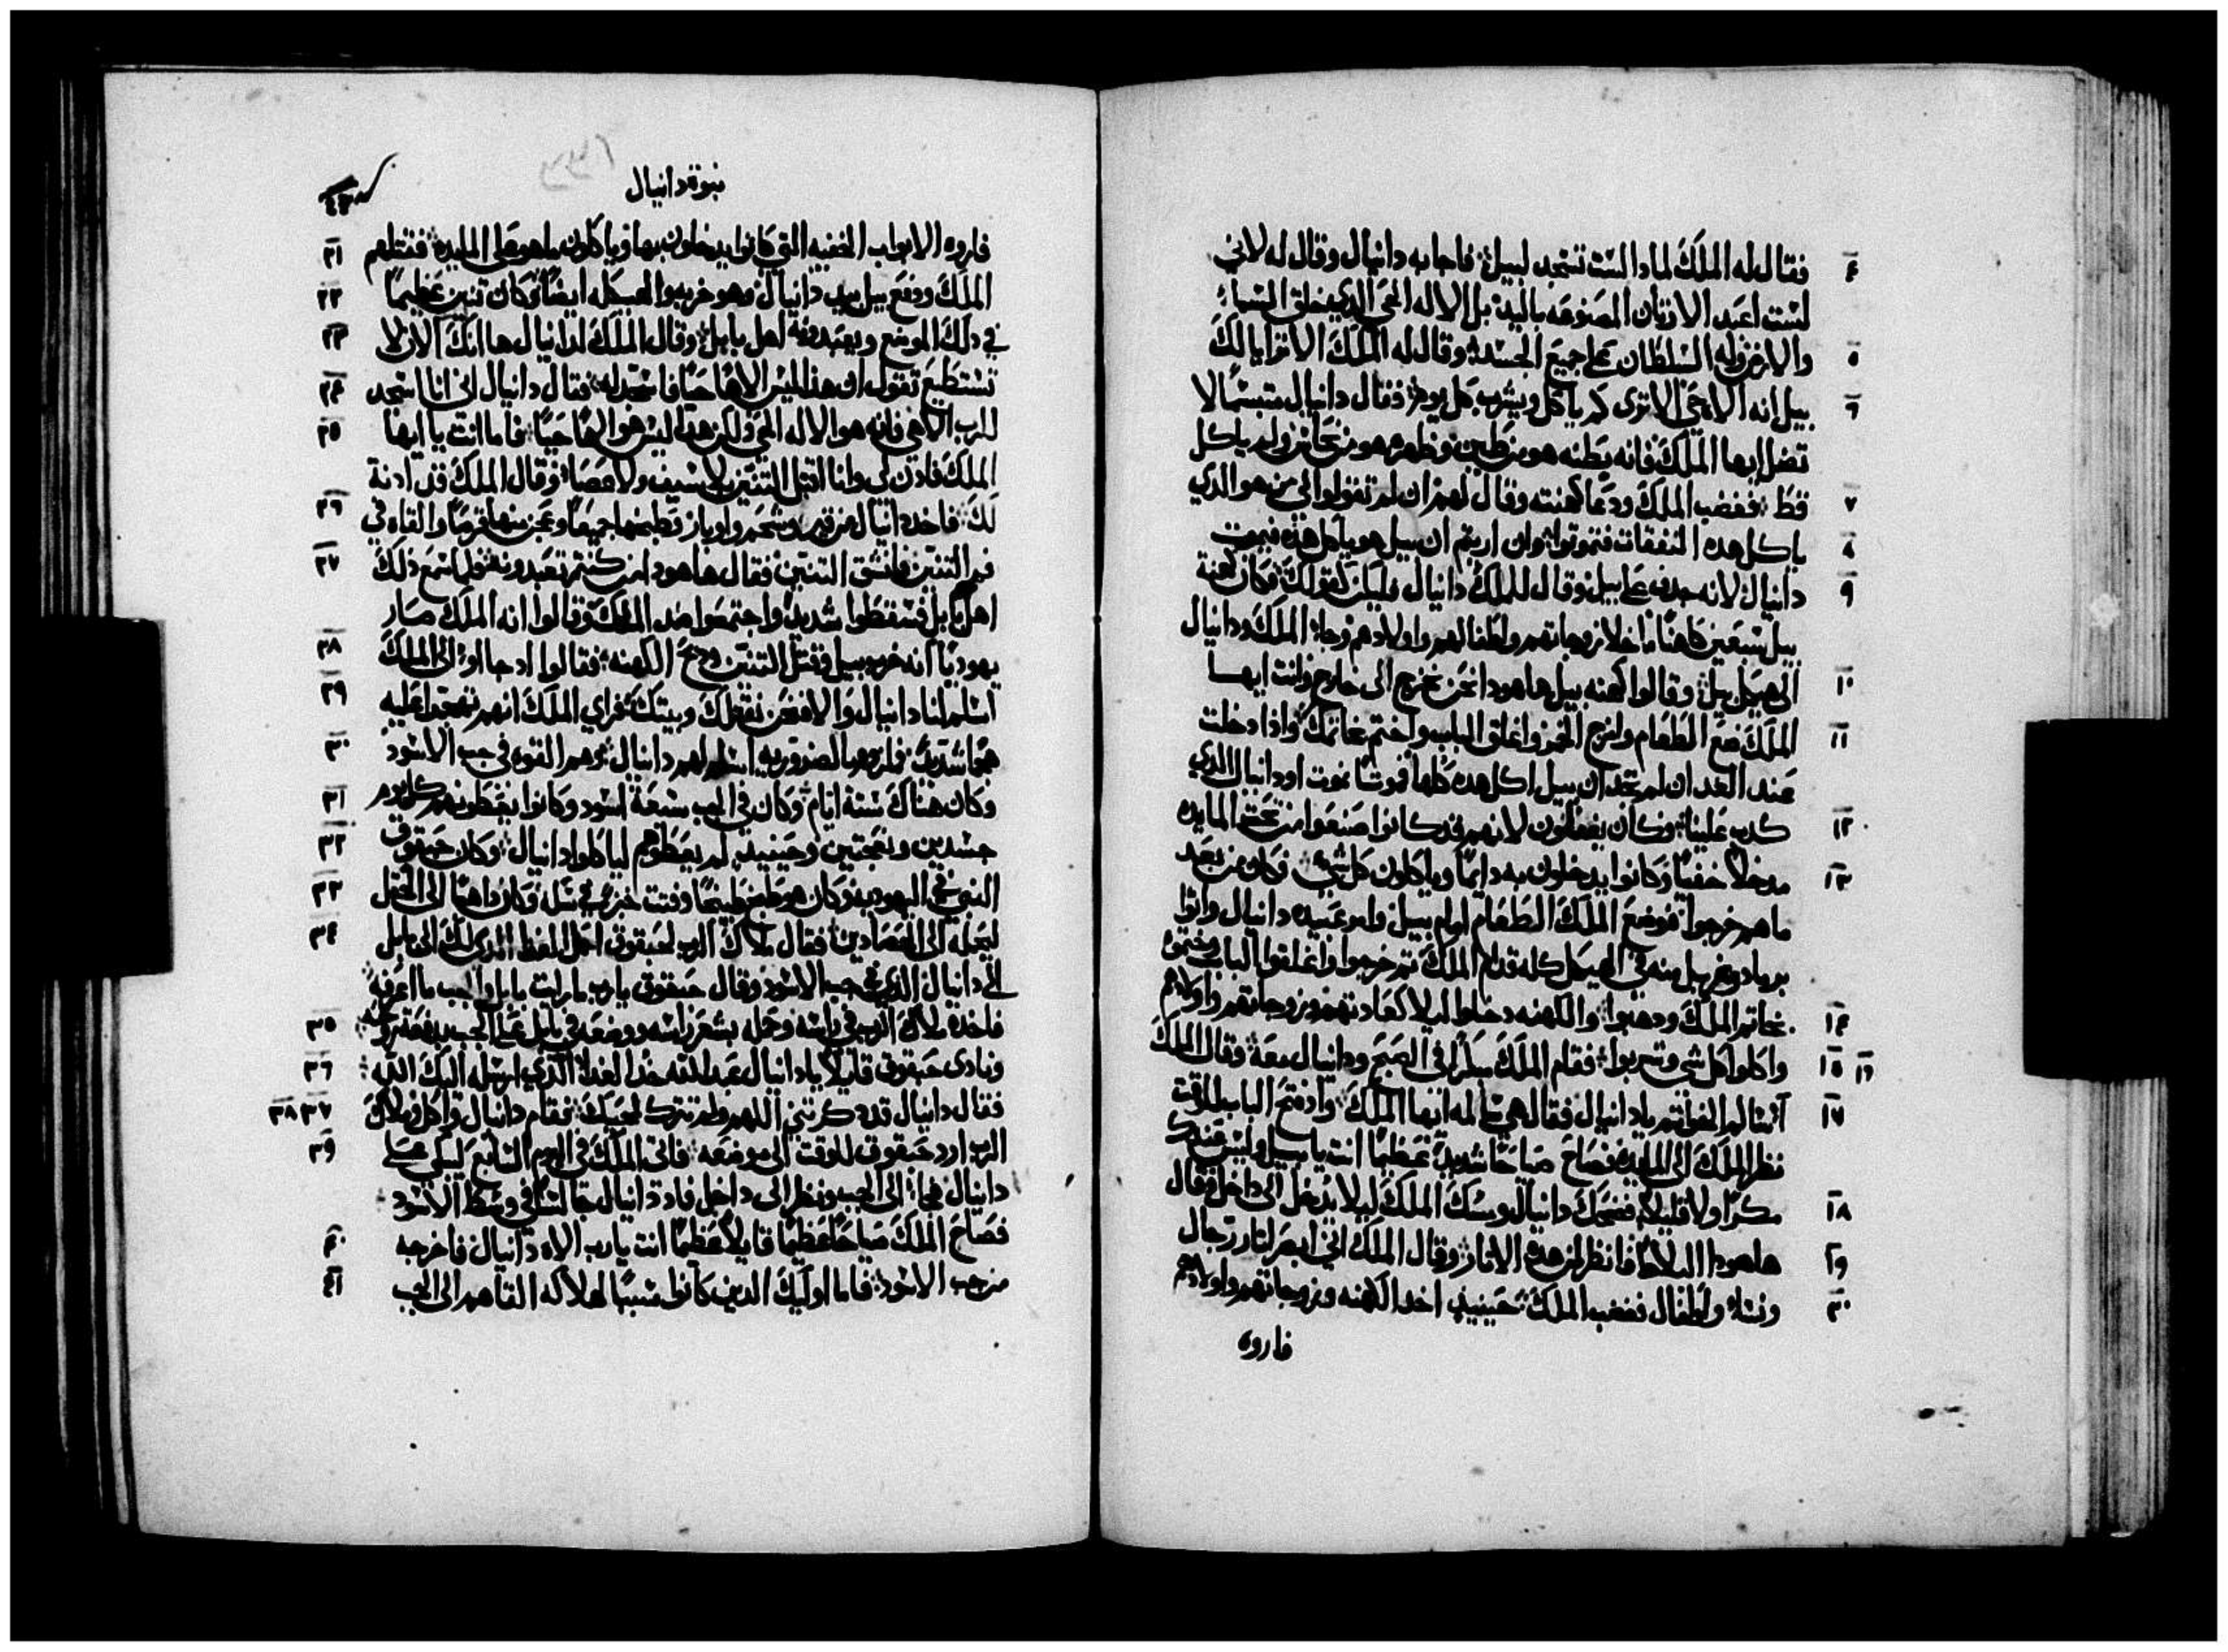 ٤ فقال له الملك لمادا لست تسجد لبيل؛ فاجابه دانيال وقال له لاني
لست اعبد الاوتان المصنوعه باليد؛ بل الاله الحي الدي خلق السماء
٥ والارض وله السلطان على جميع الجسد؛ وقال له الملك الا تترايا لك
٦ بيل انه الاه حي الا ترى كم ياكل ويشرب كل يوم؛ فقال دانيال متبسمًا لا
تضل ايها الملك فانه بطنه هو من طين وظاهره هو من نحاس ولم ياكل
٧ قط؛ فغضب الملك ودعا كهنته وقال لهم ان لم تقولوا لي من هو الدي
٨ ياكل هده النفقات فتموتوا؛ وان اريتم ان بيل هو ياكل هده فيموت
٩ دانيال لانه جدف على بيل؛ وقال للملك دانيال فليكن كقولك؛ فكان كهنة
بيل سبعين كاهنًا ما خلا زوجاتهم واطفالهم واولادهم؛ وجاء الملك ودانيال
١٠ الى هيكل بيل؛ وقالوا كهنه بيل ها هودا نحن نخرج الى خارج وانت ايها
١١ الملك ضع الطعام وامزج الخمر واغلق الباب واختم بخاتمك؛ وادا دخلت
عند الغد ان لم تجد ان بيل اكل هده كلها فموتًا نموت او دانيال الدي
١٢ كدب علينا؛ وكان يغفلون لانهم قد كانوا صنعوا من تحت المايده
١٣ مدخلًا خفيًا وكانوا يدخلون به دايمًا وياكلون كل شي؛ فكان من بعد
ما هم خرجوا؛ فوضع الملك الطعام امام بيل وامر عبيده دانيال واتوا
برماد وغربل منه في الهيكل كله قدام الملك ثم خرجوا واغلقوا الباب وختموه
١٤ بخاتم الملك ودهبوا؛ والكهنه دخلوا ليلًا كعادتهم وزوجاتهم واولادهم
١٥ ١٦ واكلوا كل شي وشربوا؛ فقام الملك سحرًا في الصبح ودانيال معه؛ وقال الملك
١٧ آسالم القفل تم يا دانيال فقال هي سالمه ايها الملك؛ واد فتح الباب للوقت
نظر الملك الى المايده فصاح صياحًا شديدًا عظيمًا انت يا بيل وليس عندك
١٨ مكرًا ولا قليلًا؛ فضحك دانيال ومسك الملك ليلا يدخل الى داخل فقال
١٩ ها هودا البلاط فانظر لمن هده الاتار؛ وقال الملك اني ابصر اتار رجال
٢٠ ونساء واطفال فغضب الملك؛ حينيدٍ اخد الكهنه وزوجاتهم واولادهم
فاروه
نبوة دانيال
فاروه الابواب الخفيه التي كانوا يدخلون بها وياكلون ما هو على المايده؛ فقتلهم ٢١
الملك ودفع بيل بيد دانيال وهو خربه والهيكل له ايضًا؛ وكان تنين عظيمًا ٢٢
في دلك الموضع ويعبدونه اهل بابل؛ وقال الملك لدانيال ها انك الان لا ٢٣
تستطيع تقول ان هدا ليس الاهًا حيًا فاسجد له؛ فقال دانيال اني انا اسجد ٢٤
للرب الاهي فانه هو الاله الحي ولكن هدا ليس هو الهًا حيًا؛ فاما انت يا ايها ٢٥
الملك فادن لي وانا اقتل التنين بلا سيف ولا عصا؛ وقال الملك قد ادنة
لك؛ فاخد دانيال من قير وشحم واوبار وطبخها جميعًا وعجن منها قرصًا والقاه في ٢٦
فم التنين فانشق التنين فقال ها هودا من كنتم تعبدونه؛ فلما سمع دلك ٢٧
اهل بابل فسخطوا شديدًا واجتمعوا ضد الملك؛ وقالوا انه الملك صار
يهوديًا انه خرب بيل وقتل التنين ودبح الكهنه؛ فقالوا اد جااوا الى الملك ٢٨
اسلم لنا دانيال والا فنحن نقتلك وبيتك؛ فراي الملك انهم تهجموا عليه ٢٩
هجًا شديدًا؛ فلزوم الضروريه اسلم لهم دانيال؛ وهم القوه في جب الاسود ٣٠
وكان هناك ستة ايام؛ وكان في الجب سبعة اسود وكانوا يعطونهم كل يوم ٣١
جسدين ونعجتين وحينيدٍ لم يعطوهم لياكلوا دانيال؛ وكان حبقوق ٣٢
النبي في اليهوديه وكان هو طبخ طبيخًا وفتت خبز في سله وكان داهبًا الى الحقل ٣٣
ليحمله الى الحصادين؛ فقال ملاك الرب لحبقوق احمل الغدا الدي لك الى بابل ٣٤
الى دانيال الدي في جب الاسود؛ وقال حبقوق يا رب ما رايت بابل والجب ما اعرفه؛
فاخده ملاك الرب في راسه وحمله بشعر راسه ووضعه في بابل على الجب بدفعة روحه؛ ٣٥
ونادى حبقوق قايلًا يا دانيال عبد الله خد الغدا؛ الدي ارسله اليك الله؛ ٣٦
فقال دانيال قد دكرتني اللهم ولم تترك محبيك؛ فقام دانيال واكل؛ وملاك ٣٧ ٣٨
الرب اورد حبقوق للوقت الى موضعه؛ فاتى الملك في اليوم السابع ليبكي على ٣٩
دانيال فجا الى الجب ونظر الى داخل فادا دانيال جالسًا في وسط الاسود
فصاح الملك صياحًا عظيمًا قايلًا عظيمًا انت يا رب الاه دانيال فاخرجه ٤٠
من جب الاسود؛ فاما اوليك الدين كانوا سببًا لهلاكه القاهم الى الجب ٤١